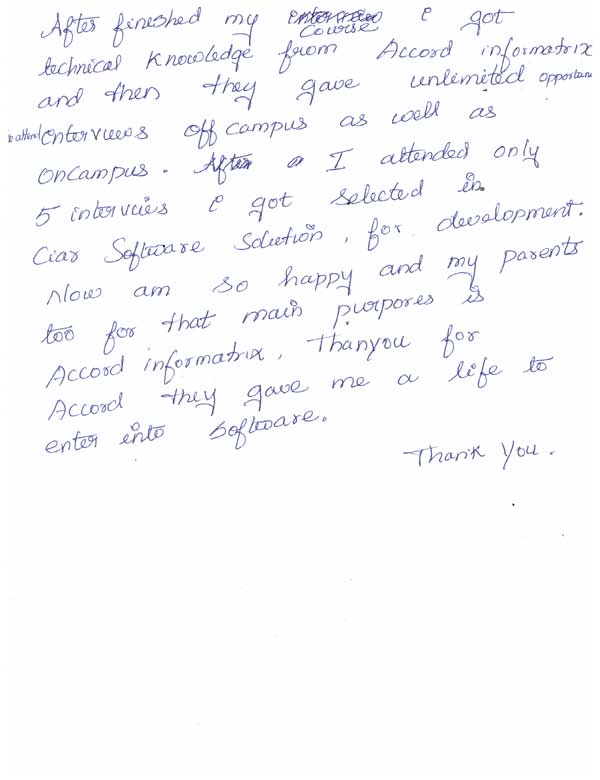 After fineshed my course i got
technical knowledge from Accord informatrix
and then they gave unlimited opportun
to attend enterviews off campus as well as
oncampus. I attended only
5 intervies i got selected in
Ciar Software Solution, for development.
Now am so happy and my parents
too for that main purpores is
Accord informatrix, Thanyou for
Accord they gave me a life to
enter into software.
Thank You.